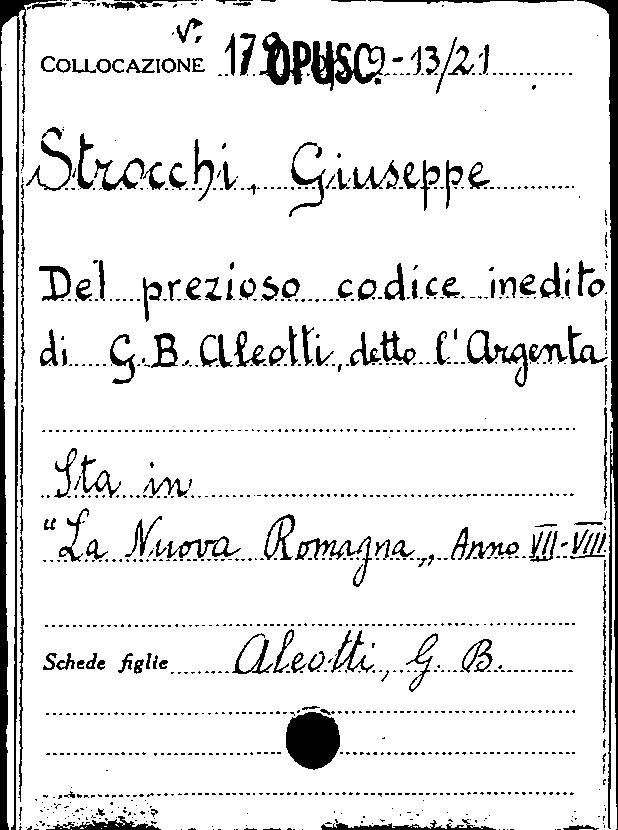 V.
COLLOCAZIONE OPUSC. 9-13/21
Strocchi, Giuseppe
Del prezioso codice inedito
di G.B. Aleotti, detto l'Argenta
Sta in
"La Nuova Romagna„ Anno VII-VIII
Schede figlie Aleotti, G. B.